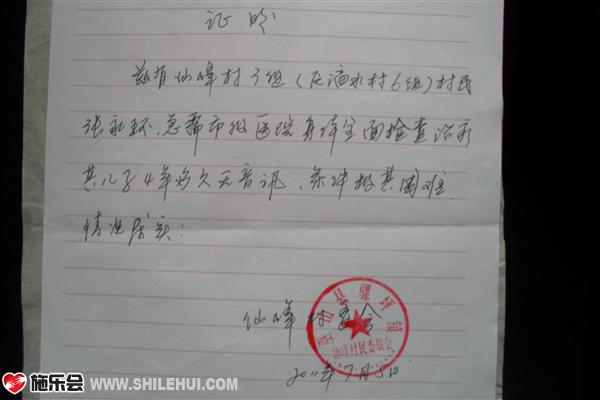 证明
兹有仙峰村3组(原滴水村6组)村民
张永环,急需市级医院身体全面检查治疗
其儿子4年多久无音讯、条件极其困难.
情况属实!
仙峰村委会
巫山县骡坪镇
仙峰村民委员会
2011年7月5日
施乐会 WWW.SHILEHUI.COM